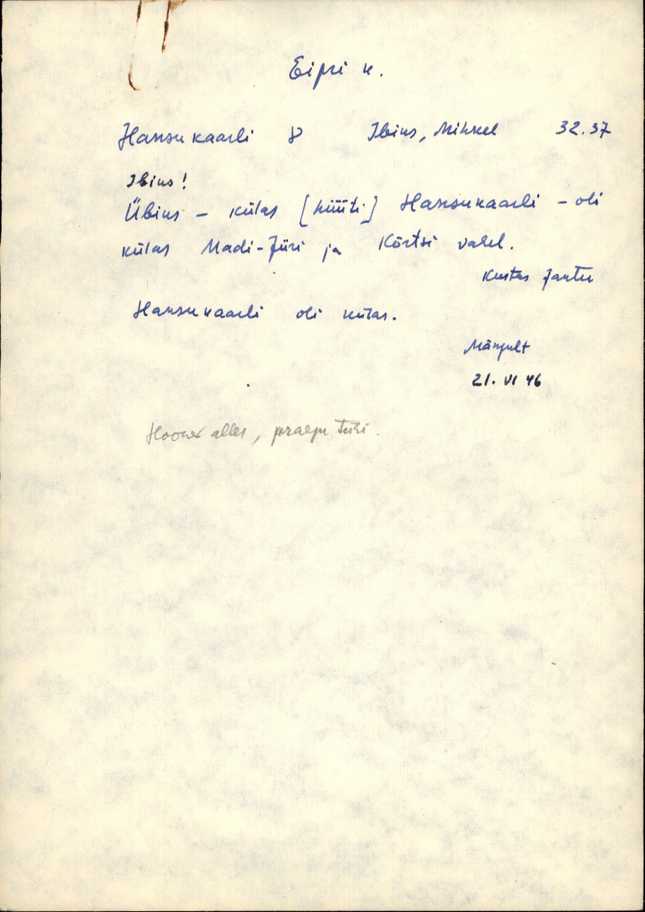 Eipri k.
Hansukaarli 8 Ibius, Mihkel 32.37
Ibius!
Übius – külas [hüüti] Hansukaarli – oli
külas Madi-Jüri ja Kõrtsi vahel.
Kustas Jantu
Hansukaarli oli külas.
21. VI 46
alles, praegu Jüri.